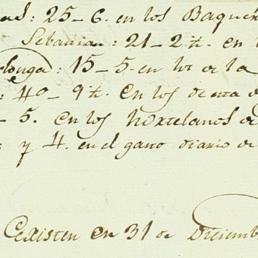 : 25-6. en los Baque
Sebastian : 21-2 r. en
longa : 15-5. en los de la
: 40-9 r. en los de
-5. en los Hortelanos de
: y 4. en el gasto diario de
Existen en 31 de Diciemb